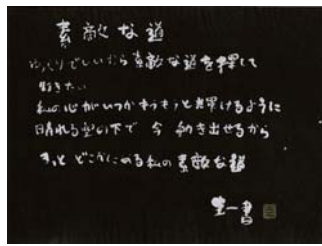 素敵な道
ゆっくりでいいから素敵な道を探して
歩きたい
私の心がいつかキラキラと輝けるように
晴れる空の下で 今 動き出せるから
きっと どこかにある私の素敵な道
圭一書